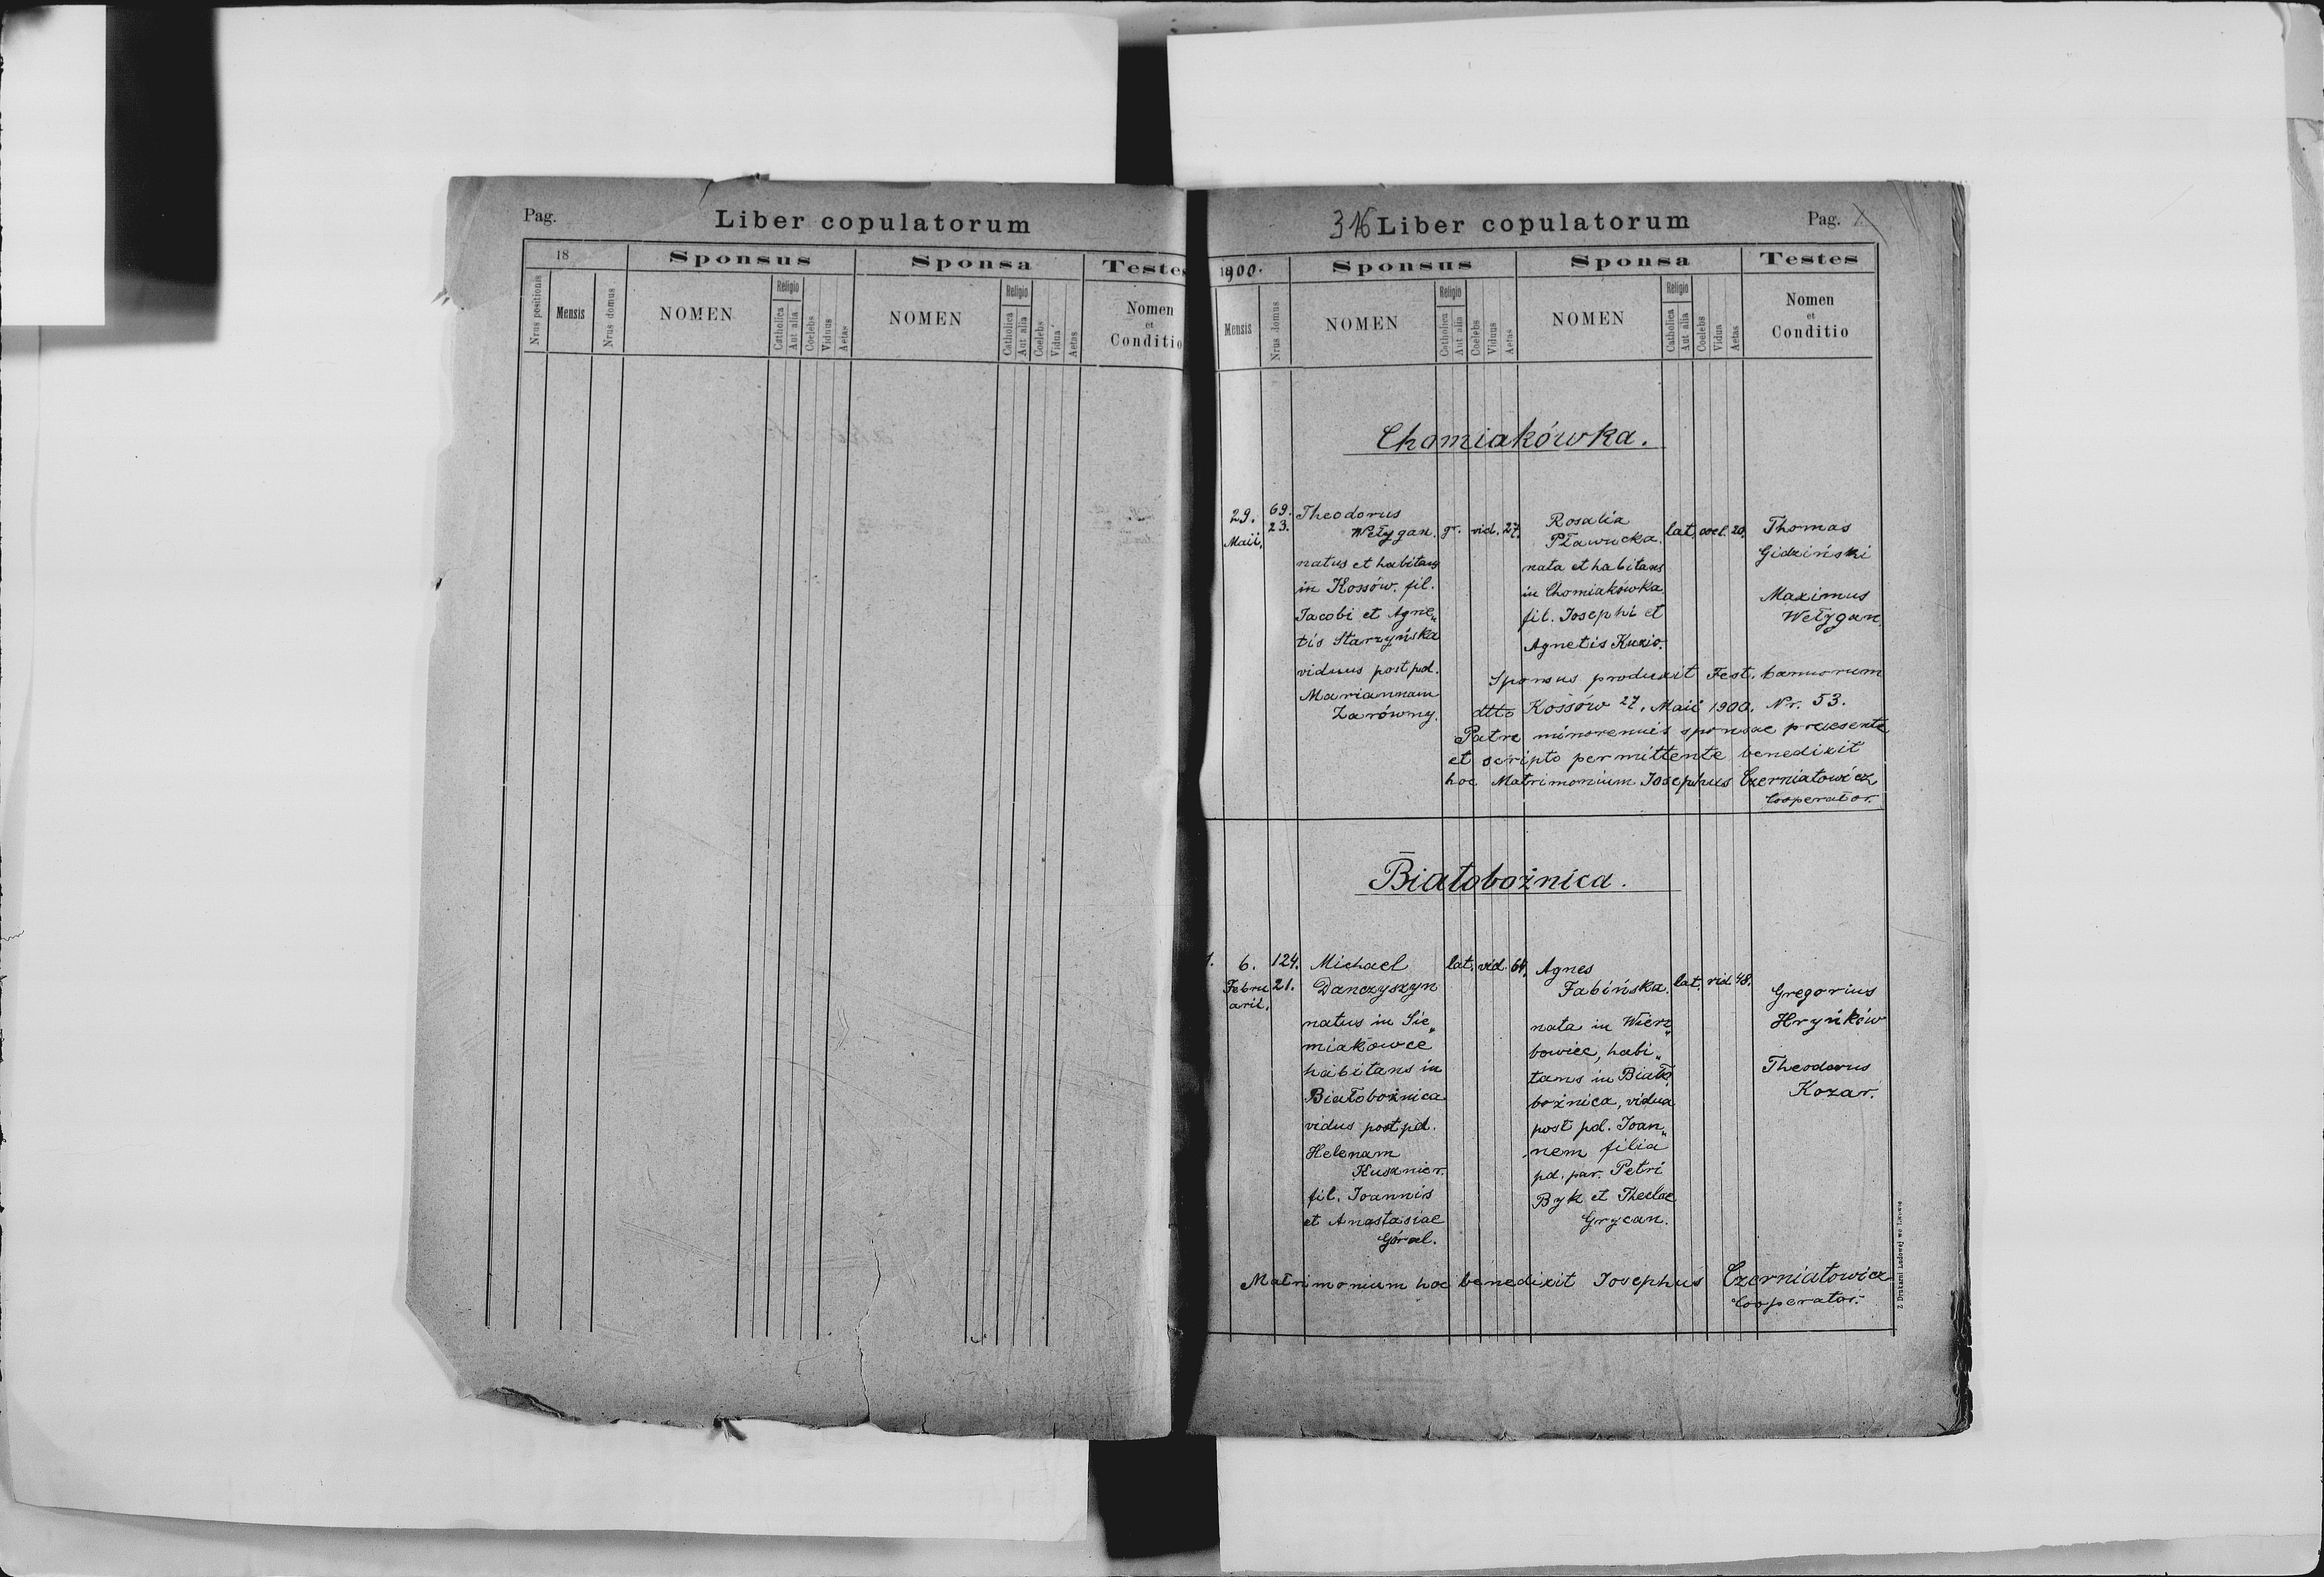 Pag.
Liber copulatorum
18
Sponsus
Sponsa
Testes
Nrus positionis
Mensis
Nrus domus
NOMEN
Religio
Catholica
Aut alia
Coelebs
Viduus
Aetas
NOMEN
Religio
Catholica
Aut alia
Coelebs
Vidua
Aetas
Nomen
et
Conditio
316 Liber copulatorum
Pag.
1900.
Sponsus
Sponsa
Testes
Mensis
Nrus domus
NOMEN
Religio
Catholica
Aut alia
Coelebs
Viduus
Aetas
NOMEN
Religio
Catholica
Aut alia
Coelebs
Vidua
Aetas
Nomen
et
Conditio
Chomiakówka.
29.
Maii.
69.
23.
Theodorus
Wełygan.
natus et habitans
in Kossów. fil.
Jacobi et Agne„
tis Starzyńska
viduus post pd.
Mariannam
Zarówny.
gr. vid. 27.
Rosalia
Pławucka.
nata et habitans
in Chomiakówka
fil. Josephi et
Agnetis Kuzio.
lat. coel. 20.
Thomas
Gidziński
Maximus
Wełygan.
Sponsus produxit Test. bannorum
dtto Kossów 27. Maii 1900. Nr. 53.
Patre minorennis sponsae praesente
et scripto permittente benedixit
hoc Matrimonium Josephus Czerniatowicz
Cooperator.
Białobożnica.
1.
6.
Febru
arii.
124.
21.
Michael
Danczyszyn
natus in Sie„
miakowce
habitans in
Białobożnica
vidus post pd.
Helenam
Kusznier.
fil. Joannis
et Anastasiae
Góral.
lat. vid. 64.
Agnes
Fabińska.
nata in Wierz„
bowiec, habi„
tans in Biało
bożnica, vidua
post pd. Joan„
nem filia
pd. par. Petri
Byk et Theclae
Grycan.
lat. vid. 48.
Gregorius
Hryńków
Theodorus
Kozar.
Matrimonium hoc benedixit Josephus Czerniatowicz
Cooperator.
Z Drukarni Ludowej we Lwowie